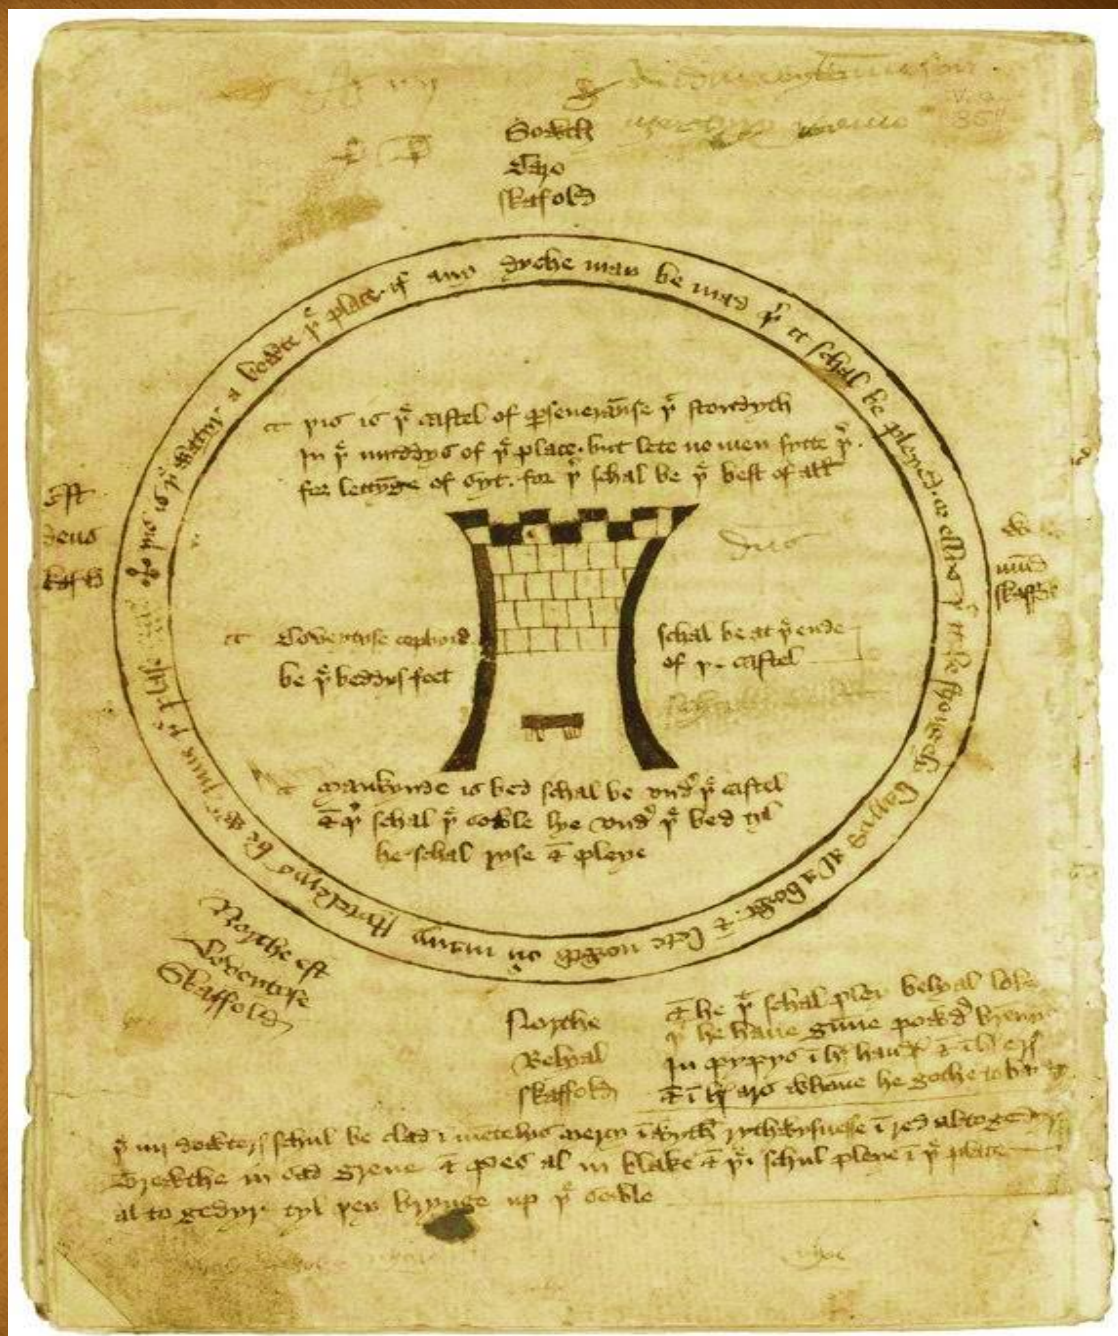 Sowth
Caro
skafold
þis is þe watyr a bowte þe place. if any dyche may be mad þer it schal be pleyed. or ellys þat it be strongely barryd al a bowt. & lete nowth ouer many stytelerys be wyth Inne þe plase
þis is þe castel of perseueraunse þat stondyth
In þe myddys of þe place. but lete no men sytte þer.
for lettynge of syt. for þer schal be þe best of all
Est
deus
skafold
mund
skaffold
Coveytyse copbord
be þe beddys feet
schal be at þe ende
of þe castel
Mankynde is bed schal be vndyr þe castel
& þer schal þe sowle lye vndyr þe bed tyl
he schal ryse & pleye
Northe est
Coveytyse
Skaffold
Northe
Belyal
skaffold
& he þat schal pley belyal loke
þat he haue gunne powdyr brennynge
In pypys in hys handys & in hys erys
& in hys ars whanne he gothe to
þe iiij dowterys schul be clad in mentelys Mercy in wyth rythwysnesse in red altogedyr
Trewthe in sad grene & Pes al in blake & þei schul pleye in þe place
al to gedyr tyl þey brynge up þe sowle